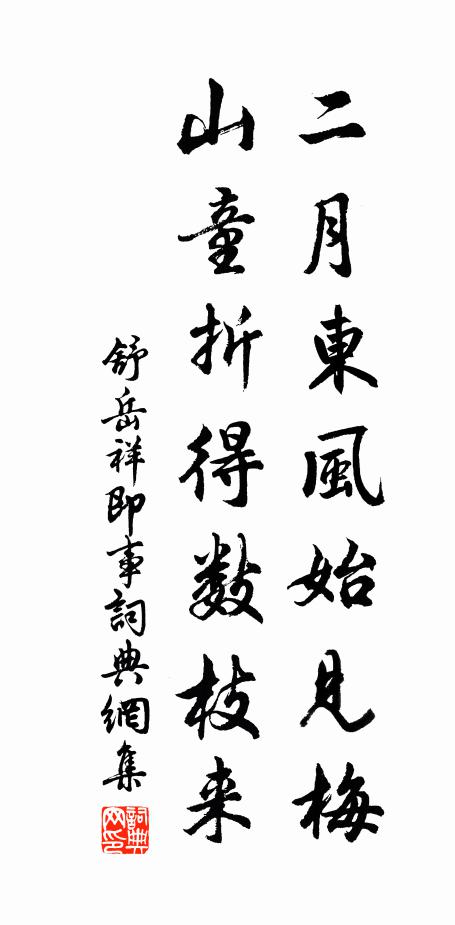 二月東風始見梅
山童折得数枝来
舒岳祥即事詞典網集
詞典
网印